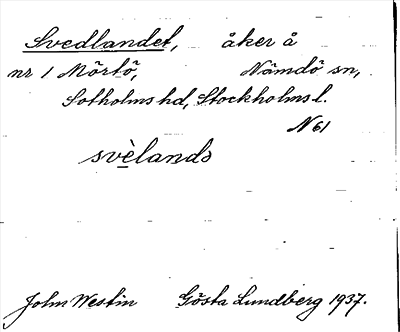 Svedlandet, åker å
nr 1 Mörtö, Nämdö sn,
Sotholms hd, Stockholms l.
N 61
svèlandə
John Westin Gösta Lundberg 1937.